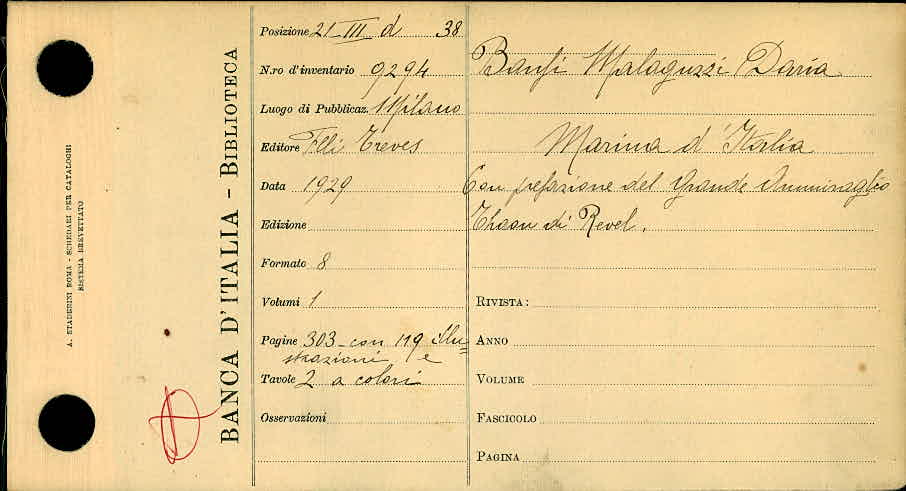 A. STADERINI ROMA - SCHEDARI PER CATALOGHI
SISTEMA BREVETTATO
BANCA D'ITALIA - BIBLIOTECA
Posizione 21 III d 38
N.ro d'inventario 9294
Luogo di Pubblicaz. Milano
Editore F.lli Treves
Data 1929
Edizione
Formato 8
Volumi 1
Pagine 303 - con 119 illu=
strazioni e
Tavole 2 a colori
Osservazioni
Banfi Malaguzzi Daria
Marina d'Italia
Con prefazione del Grande Ammiraglio
Thaon di Revel.
RIVISTA:
ANNO
VOLUME
FASCICOLO
PAGINA